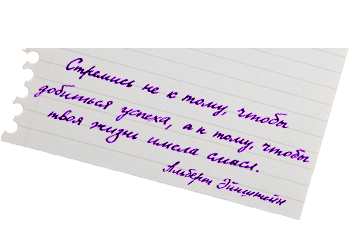 Стремись не к тому, чтобы
добиться успеха, а к тому, чтобы
твоя жизнь имела смысл.
Альберт Эйнштейн